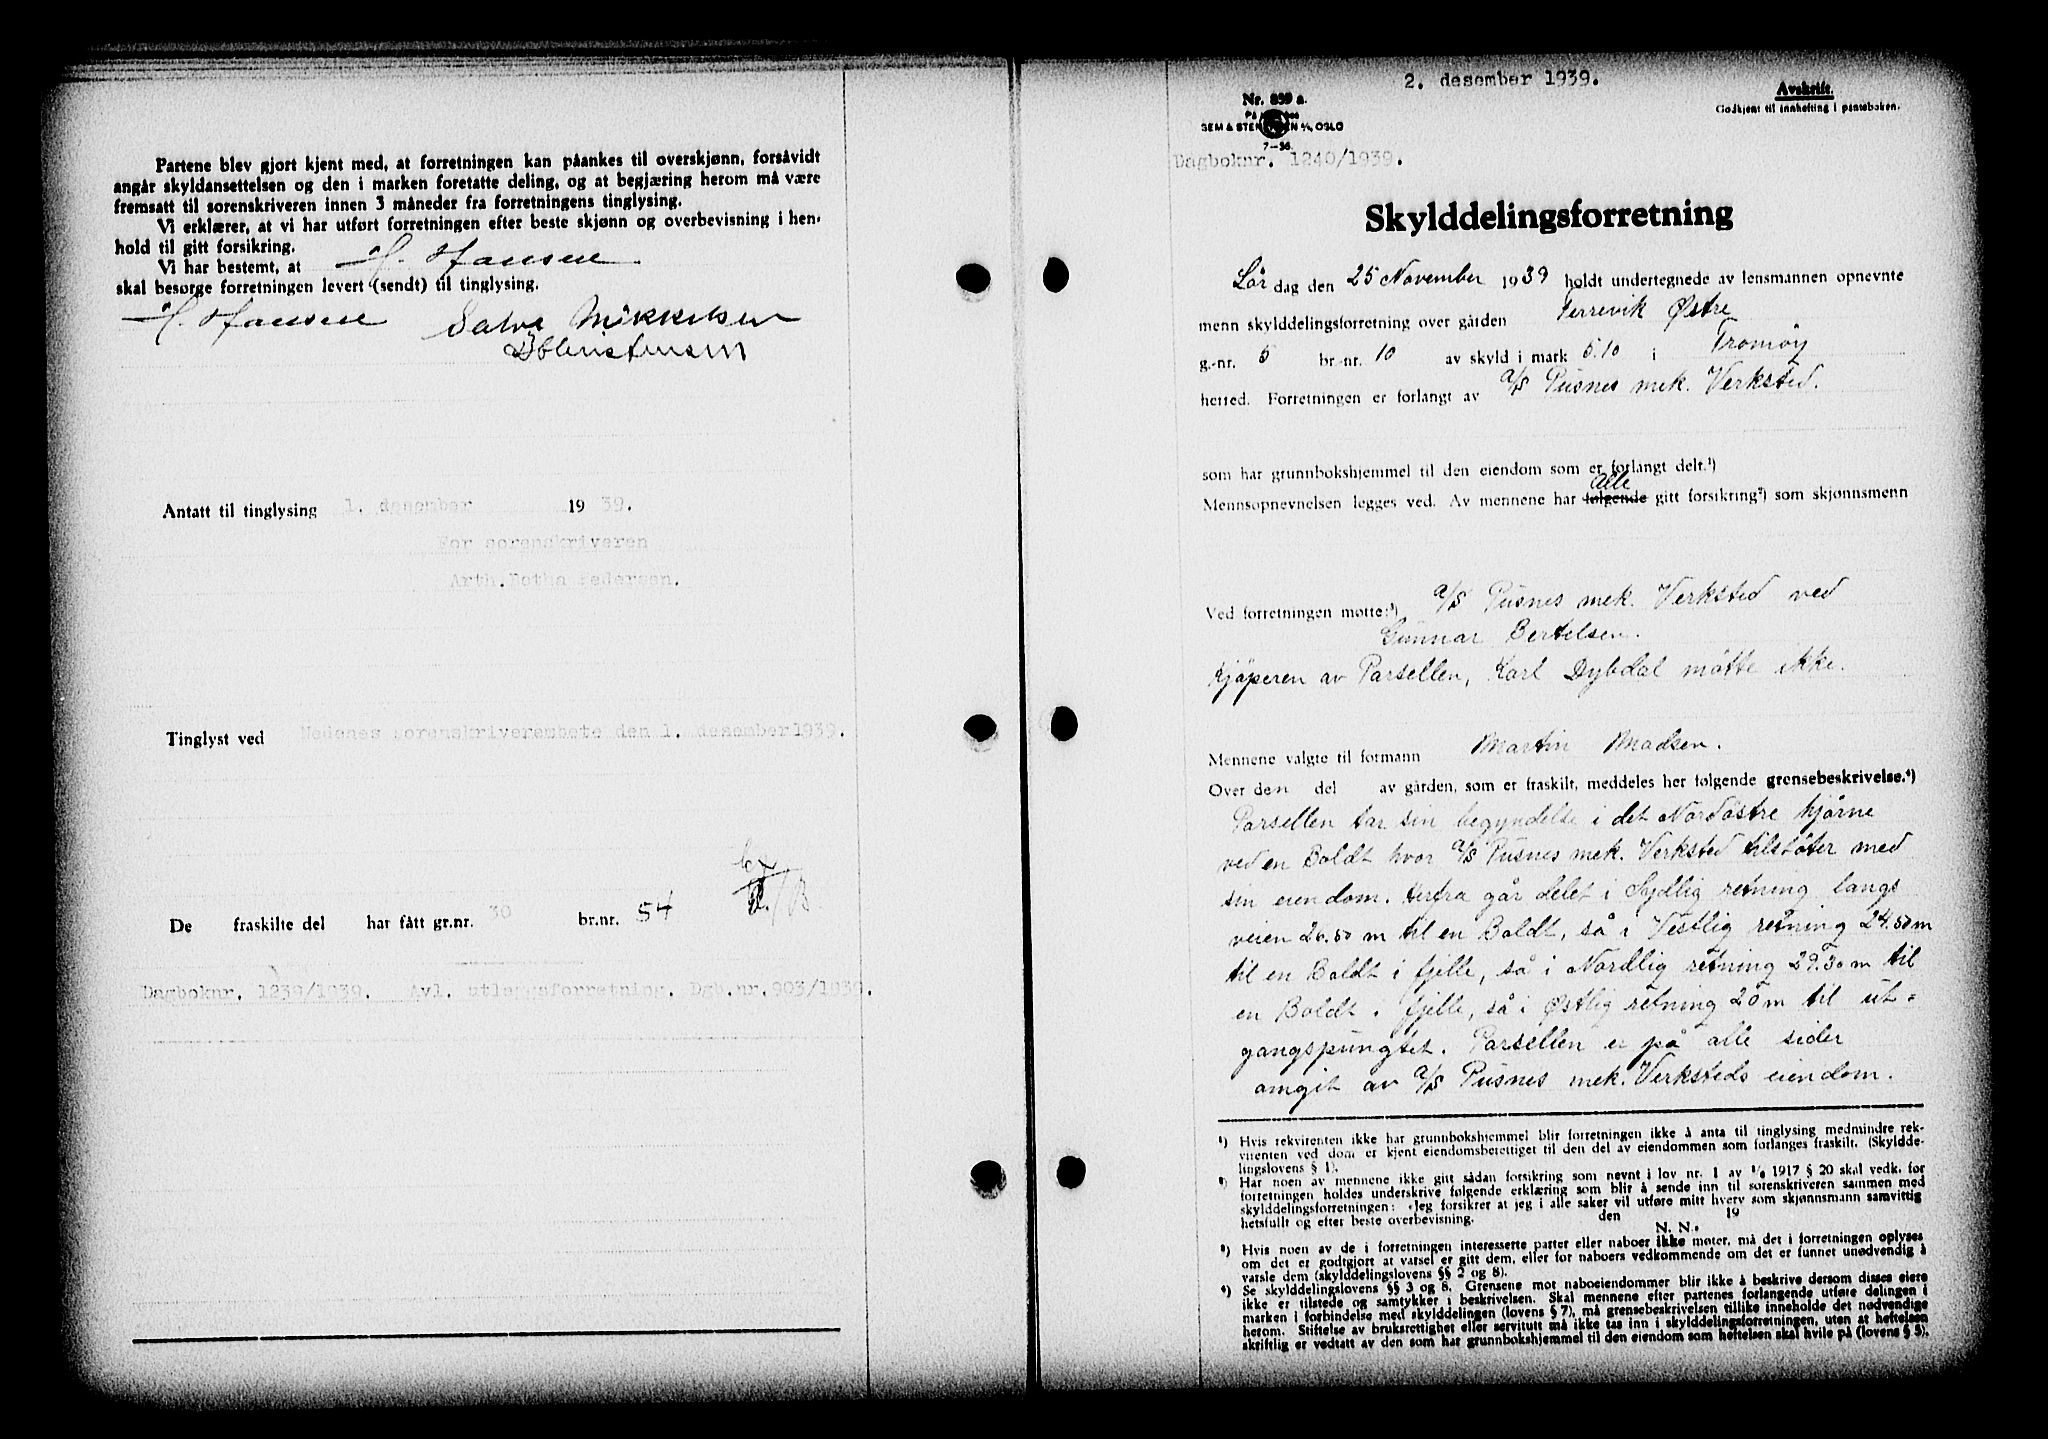 Partene blev gjort kjent med, at forretningen kan påankes til overskjønn, forsåvidt
angår skyldansettelsen og den i marken foretatte deling, og at begjæring herom må være
fremsatt til sorenskriveren innen 3 måneder fra forretningens tinglysing.
Vi erklærer, at vi har utført forretningen efter beste skjønn og overbevisning i hen-
hold til gitt forsikring.
Vi har bestemt, at H. Hansen
skal besørge forretningen levert (sendt) til tinglysing.
H. Hansen Salve Mikkelsen
Antatt til tinglysing 1. desember 1939.
For sorenskriveren
Arth. Botha Pedersen.
Tinglyst ved Nedenes sorenskriverembete den 1. desember 1939.
De fraskilte del har fått gr.nr. 30 br.nr. 54
Dagboknr. 1239/1939. Avl. utleggsforretning. Dgb.nr. 903/1939.
2. desember 1939.
Nr. 839 a.
SEM & STENERSEN A/S, OSLO
7-36.
Avskrift.
Godkjent til innhefting i panteboken.
Dagboknr. 1240/1939.
Skylddelingsforretning
Lördag den 25 November 1939 holdt undertegnede av lensmannen opnevnte
menn skylddelingsforretning over gården Færrevik Østre
g.-nr. 5 br.-nr. 10 av skyld i mark 5.10 i Tromöy
herred. Forretningen er forlangt av a/s Pusnes mek. Verksted.
som har grunnbokshjemmel til den eiendom som er forlangt delt.¹)
Alle
Mennsopnevnelsen legges ved. Av mennene har følgende gitt forsikring²) som skjønnsmenn
Ved forretningen møtte:³) a/s Pusnes mek. Verksted ved
Gunnar Bertelsen.
Kjöperen av Parsellen, Karl Dybdal mötte ikke.
Mennene valgte til formann Martin Madsen.
Over den del av gården, som er fraskilt, meddeles her følgende grensebeskrivelse.⁴)
Parsellen tar sin begyndelse i det Nordöstre hjörne
ved en Boldt hvor a/s Pusnes mek. Verksted tilstöter med
sin eiendom. Herfra går delet i Sydlig retning langs
veien 26.50 m til en Boldt, så i Vestlig retning 24.50 m
til en Boldt i fjelle, så i Nordlig retning 29.30 m til
en Boldt i fjelle, så i Østlig retning 20 m til ut-
gangspungtet. Parsellen er på alle sider
omgit av a/s Pusnes mek. Verksteds eiendom.
¹) Hvis rekvirenten ikke har grunnbokshjemmel blir forretningen ikke å anta til tinglysing medmindre rek-
virenten ved dom er kjent eiendomsberettiget til den del av eiendommen som forlanges fraskilt. (Skyldde-
lingslovens § 1).
²) Har noen av mennene ikke gitt sådan forsikring som nevnt i lov nr. 1 av 1/6 1917 § 20 skal vedk. før
forretningen holdes underskrive følgende erklæring som blir å sende inn til sorenskriveren sammen med
skylddelingsforretningen: «Jeg forsikrer at jeg i alle saker vil utføre mitt hverv som skjønnsmann samvittig
hetsfullt og efter beste overbevisning.
den 19
N. N.
³) Hvis noen av de i forretningen interesserte parter eller naboer ikke møter, må det i forretningen oplyses
om det er godtgjort at varsel er gitt dem, eller for naboers vedkommende om det er funnet unødvendig å
varsle dem (skylddelingslovens §§ 2 og 8).
⁴) Se skylddelingslovens §§ 3 og 8. Grensene mot naboeiendommer blir ikke å beskrive dersom disses eiere
ikke er tilstede og samtykker i beskrivelsen. Skal mennene efter partenes forlangende utføre delingen i
marken i forbindelse med skylddelingen (lovens § 7), må grensebeskrivelsen tillike inneholde det nødvendige
herom. Stiftelse av bruksrettighet eller servitutt må ikke tas inn i skylddelingsforretningen, uten at heftelsen
skriftlig er vedtatt av den som har grunnbokshjemmel til den eiendom som heftelsen skal hvile på (lovens § 5).